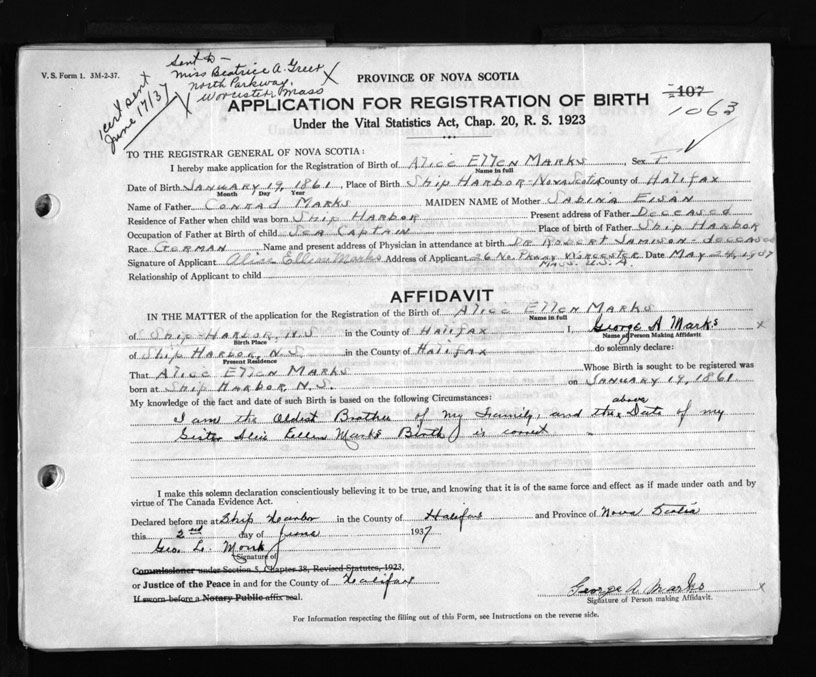 V. S. Form 1. 3M-2-37.
Sent to -
Miss Beatrice A. Greer
North Parkway,
Worcester, Mass
1 cert sent
June 17/37
PROVINCE OF NOVA SCOTIA
107
1063
APPLICATION FOR REGISTRATION OF BIRTH
Under the Vital Statistics Act, Chap. 20, R. S. 1923
TO THE REGISTRAR GENERAL OF NOVA SCOTIA:
I hereby make application for the Registration of Birth of ALICE ELLEN MARKS, Sex F
Name in full
Date of Birth JANUARY 19, 1861, Place of Birth SHIP HARBOR-NOVA SCOTIA County of HALIFAX
Month Day Year
Name of Father CONRAD MARKS MAIDEN NAME of Mother SABINA EISAN
Residence of Father when child was born SHIP HARBOR Present address of Father DECEASED
Occupation of Father at Birth of child SEA CAPTAIN Place of birth of Father SHIP HARBOR
Race GERMAN Name and present address of Physician in attendance at birth DR ROBERT JAMISON-DECEASED
Signature of Applicant Alice Ellen Marks Address of Applicant 26 No. Pkway WORCESTER Date MAY 24, 1937
MASS. U.S.A.
Relationship of Applicant to child
AFFIDAVIT
IN THE MATTER of the application for the Registration of the Birth of ALICE ELLEN MARKS
Name in full
of SHIP-HARBOR, N.S in the County of HALIFAX I, George A Marks x
Birth Place Name of Person Making Affidavit.
of SHIP HARBOR, N.S. in the County of HALIFAX do solemnly declare:
Present Residence
That ALICE ELLEN MARKS Whose Birth is sought to be registered was
born at SHIP HARBOR N.S. on JANUARY 19, 1861
My knowledge of the fact and date of such Birth is based on the following Circumstances:
above
I am the Oldest Brother of my Family, and the Date of my
Sister Alice Ellen Marks Birth is correct.
I make this solemn declaration conscientiously believing it to be true, and knowing that it is of the same force and effect as if made under oath and by
virtue of The Canada Evidence Act.
Declared before me at Ship Harbor in the County of Halifax and Province of Nova Scotia
this 2nd day of June 1937
Geo. L. Monk
Signature of
Commissioner under Section 5, Chapter 38, Revised Statutes, 1923,
or Justice of the Peace in and for the County of Halifax
If sworn before a Notary Public affix seal.
George A. Marks x
Signature of Person making Affidavit.
For Information respecting the filling out of this Form, see Instructions on the reverse side.